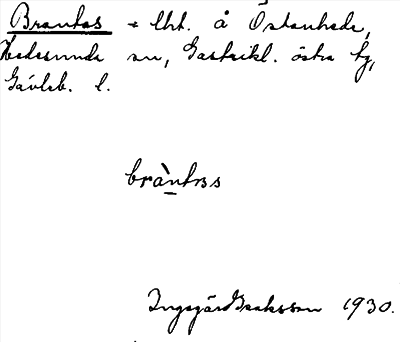 Brantas + lht. å Östanhede,
Hedesunda sn, Gästrikl. östra tg,
Gävleb. l.
bràntas
Ingegärd Isaksson 1930.